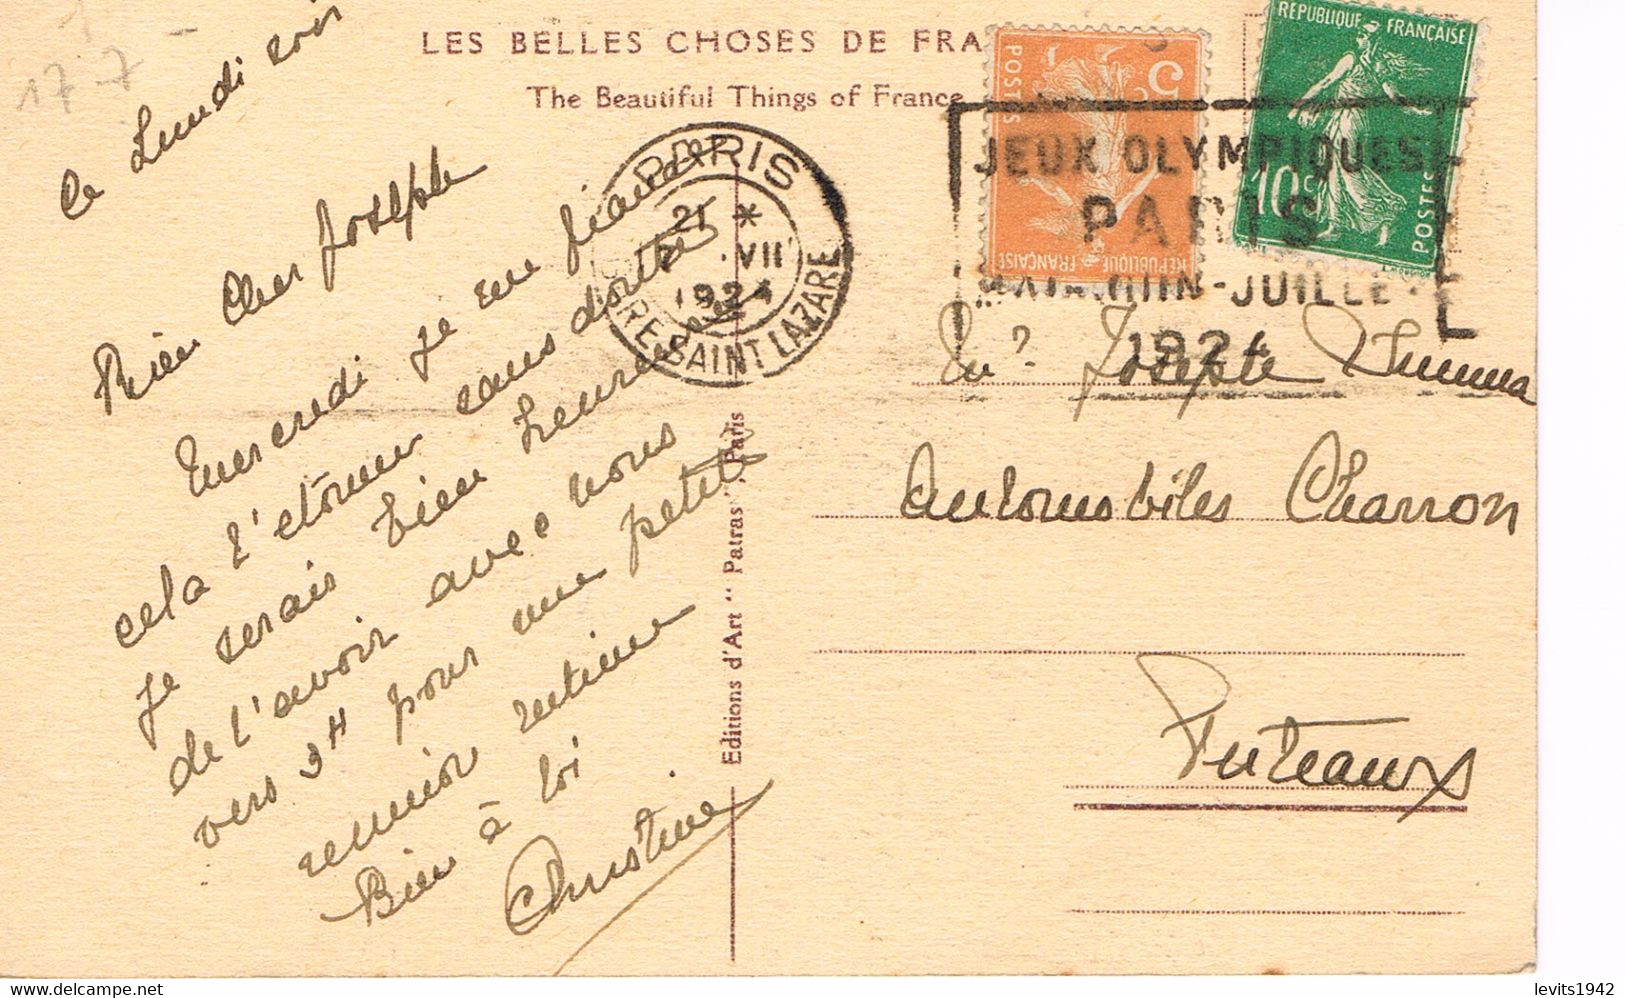 17-7
LES BELLES CHOSES DE FRA
The Beautiful Things of France
ce Lundi soir
Bien cher Joseph
Mercredi je me fiance
cela t'etonner sans doute
Je serais bien heureuse
de t'avoir avec nous
vers 3H pour une petite
reunion intime
Bien à toi
Christine
PARIS
21 *
VII
1924
GARE SAINT LAZARE
POSTES
5c
REPUBLIQUE FRANÇAISE
REPUBLIQUE FRANÇAISE
10c
POSTES
JEUX OLYMPIQUES
PARIS
MAI-JUIN-JUILLET
1924
Mr Joseph
Automobiles Charron
Puteaux
Editions d'Art "Patras". Paris
levits1942